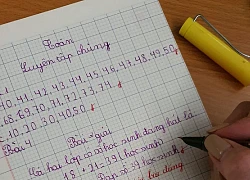 Toán
Luyện tập chung
40, 41, 42, 43, 44, 45, 46, 47, 48, 49, 50
68, 69, 70, 71, 72, 73, 74
10, 20, 30, 40, 50
Bài 4 Bài giải
Cả hai lớp có số học sinh đang hát là
18 + 21 = 39 (học sinh)
Đáp số: 39 học sinh